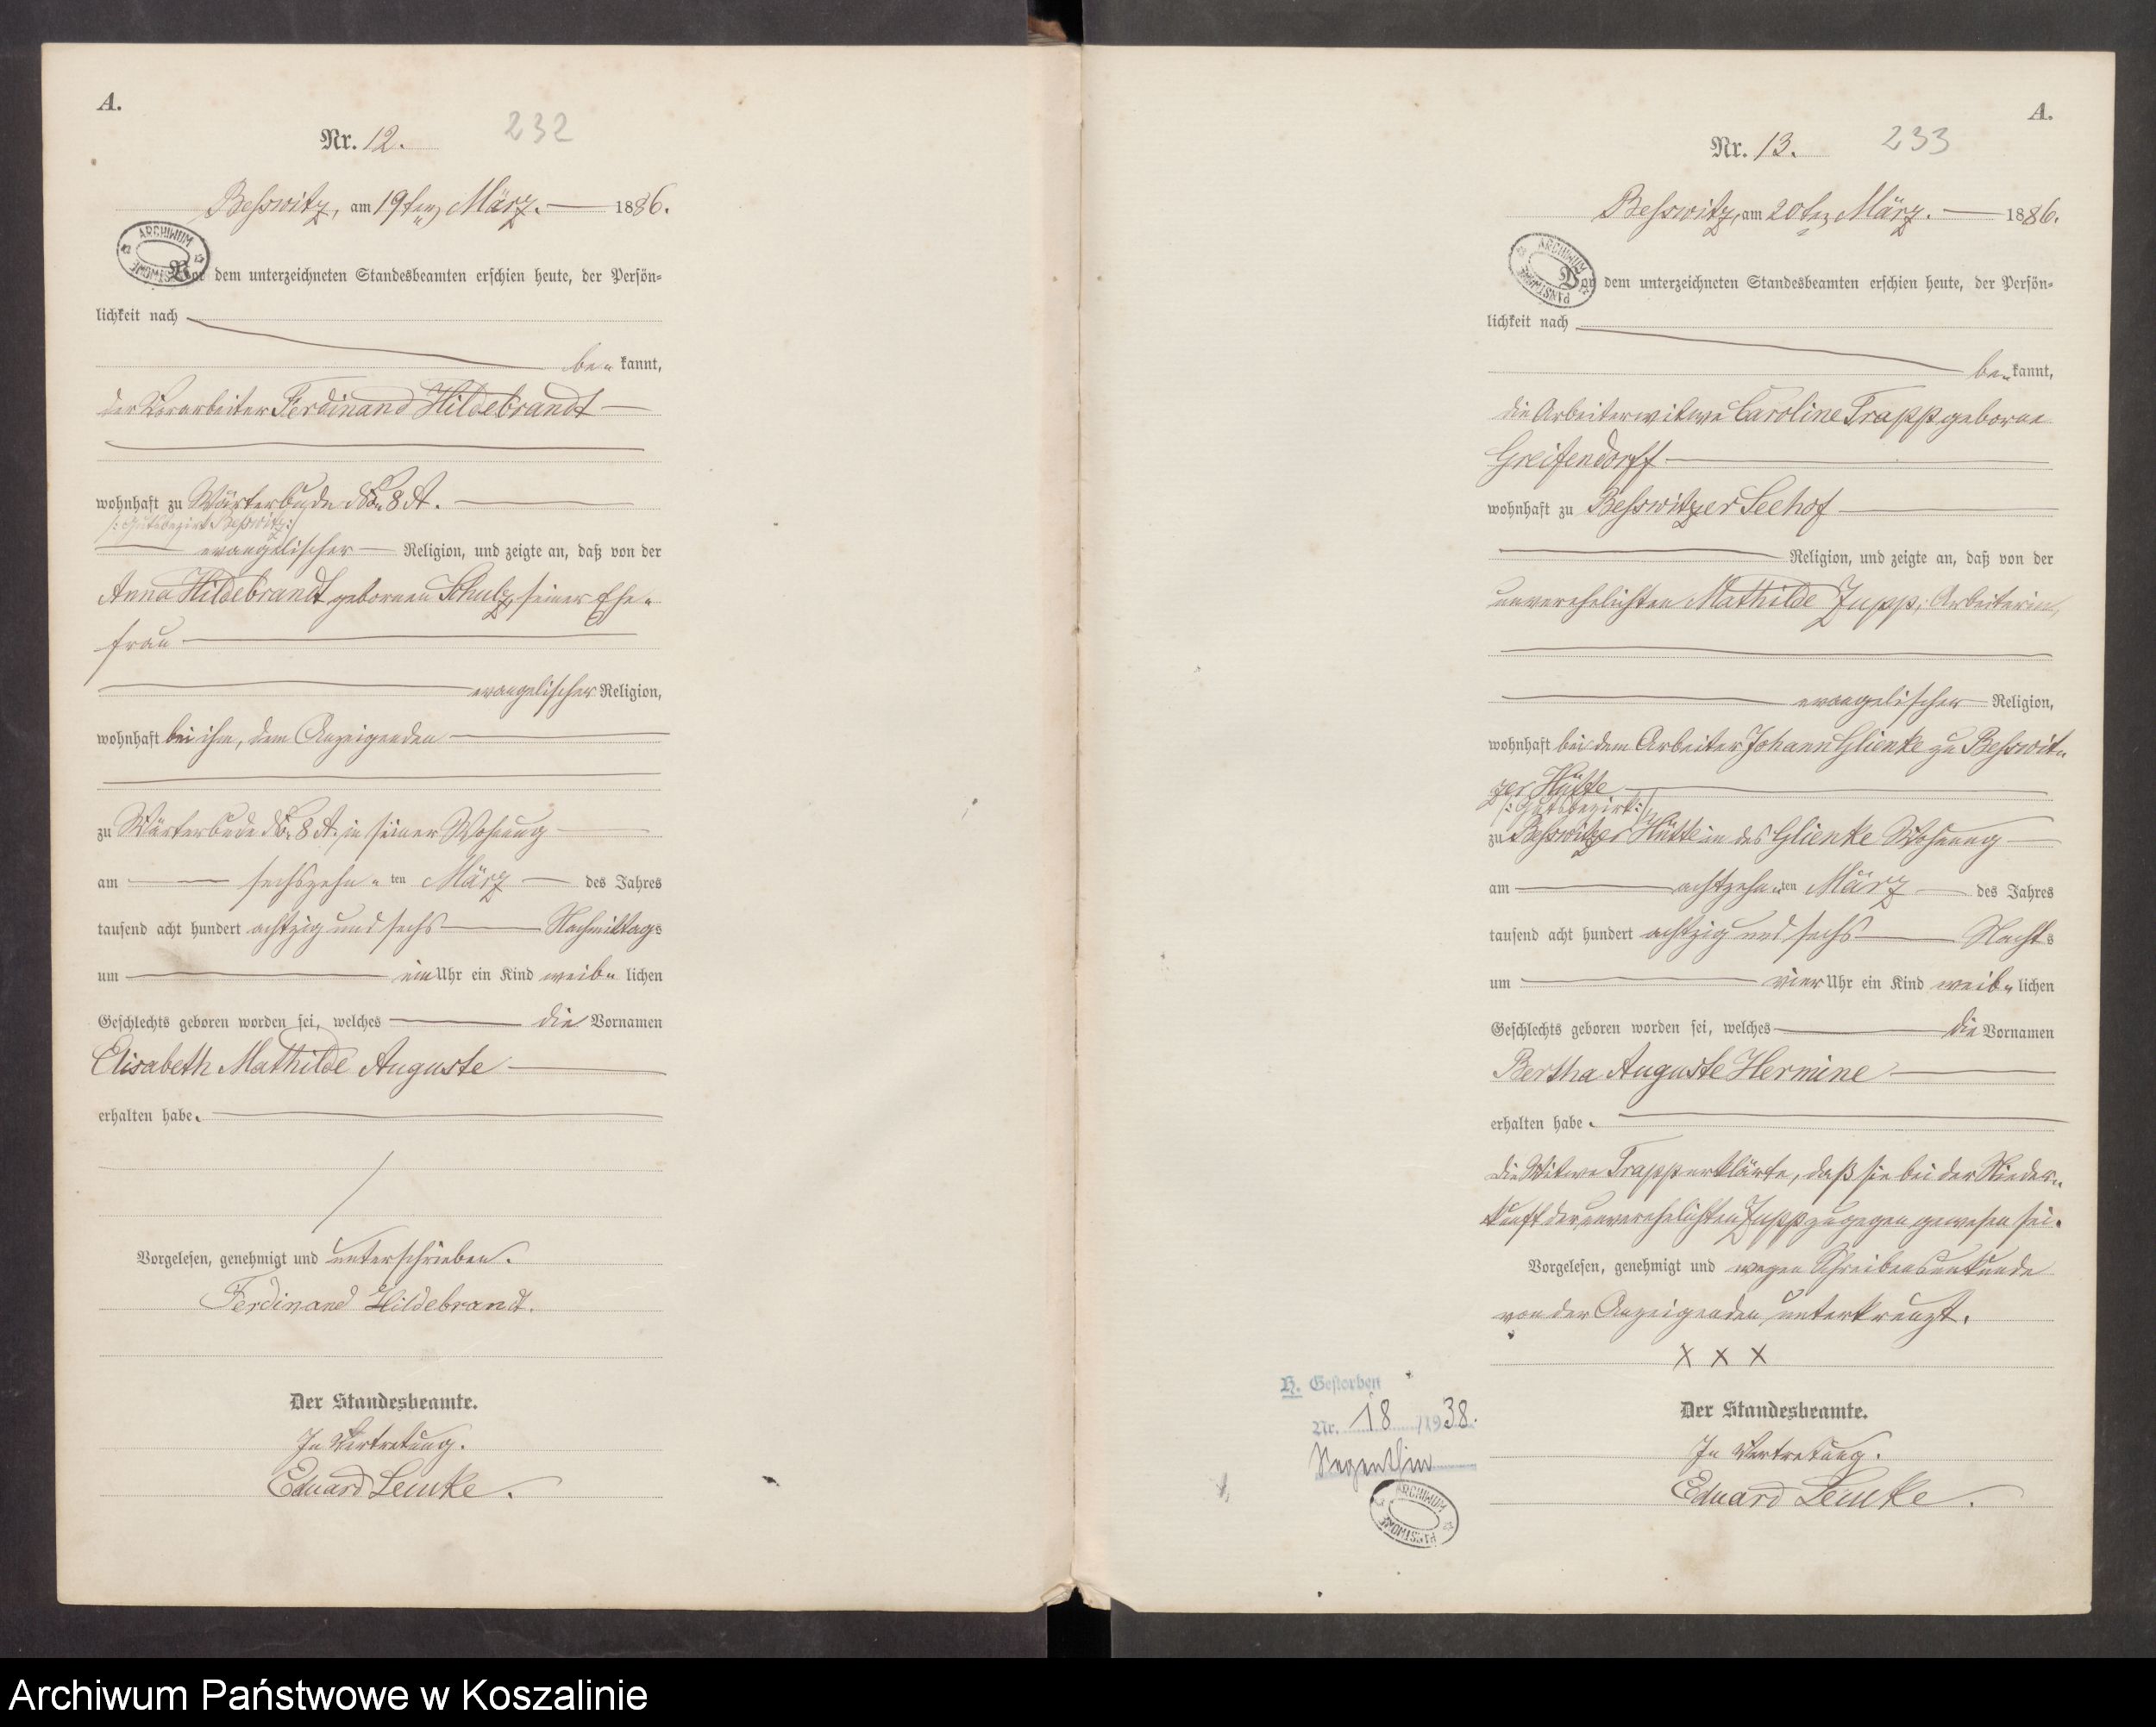 A.
Nr. 12.
232
Besswitz, am 19ten März. 1886.
ARCHIWUM PAŃSTWOWE
Vor dem unterzeichneten Standesbeamten erschien heute, der Persön=
lichkeit nach
be= kannt,
der Vorarbeiter Ferdinand Hildebrandt
wohnhaft zu Wärterbude No. 8 A.
/: Gutsbezirk Besswitz :/
evangelischer Religion, und zeigte an, daß von der
Anna Hildebrandt gebornen Schulz, seiner Ehe=
frau
evangelischer Religion,
wohnhaft bei ihm, dem Anzeigenden
zu Wärterbude No. 8 A. in seiner Wohnung
am sechszehn= ten März des Jahres
tausend acht hundert achtzig und sechs Nachmittags
um ein Uhr ein Kind weib= lichen
Geschlechts geboren worden sei, welches die Vornamen
Elisabeth Mathilde Auguste
erhalten habe.
Vorgelesen, genehmigt und unterschrieben.
Ferdinand Hildebrandt.
Der Standesbeamte.
In Vertretung.
Eduard Lemke.
A.
Nr. 13.
233
Besswitz, am 20ten März. 1886.
ARCHIWUM PAŃSTWOWE
Vor dem unterzeichneten Standesbeamten erschien heute, der Persön=
lichkeit nach
be= kannt,
die Arbeiterwitwe Caroline Trapp geborne
Greifendorff
wohnhaft zu Besswitzer Seehof
Religion, und zeigte an, daß von der
unverehelichten Mathilde Zupp, Arbeiterin,
evangelischer Religion,
wohnhaft bei dem Arbeiter Johann Glienke zu Besswit=
zer Hütte
/: Gutsbezirk :/
zu Besswitzer Hütte in des Glienke Wohnung
am achtzehn= ten März des Jahres
tausend acht hundert achtzig und sechs Nachts
um vier Uhr ein Kind weib= lichen
Geschlechts geboren worden sei, welches die Vornamen
Bertha Auguste Hermine
erhalten habe.
Die Witwe Trapp erklärte, daß sie bei der Nieder=
kunft der unverehelichten Zupp zugegen gewesen sei.
Vorgelesen, genehmigt und wegen Schreibensunkunde
von der Anzeigenden unterkreuzt.
X X X
Der Standesbeamte.
In Vertretung.
Eduard Lemke.
H. Gestorben
Nr. 18 /1938.
Segenthin
ARCHIWUM PAŃSTWOWE
Archiwum Państwowe w Koszalinie